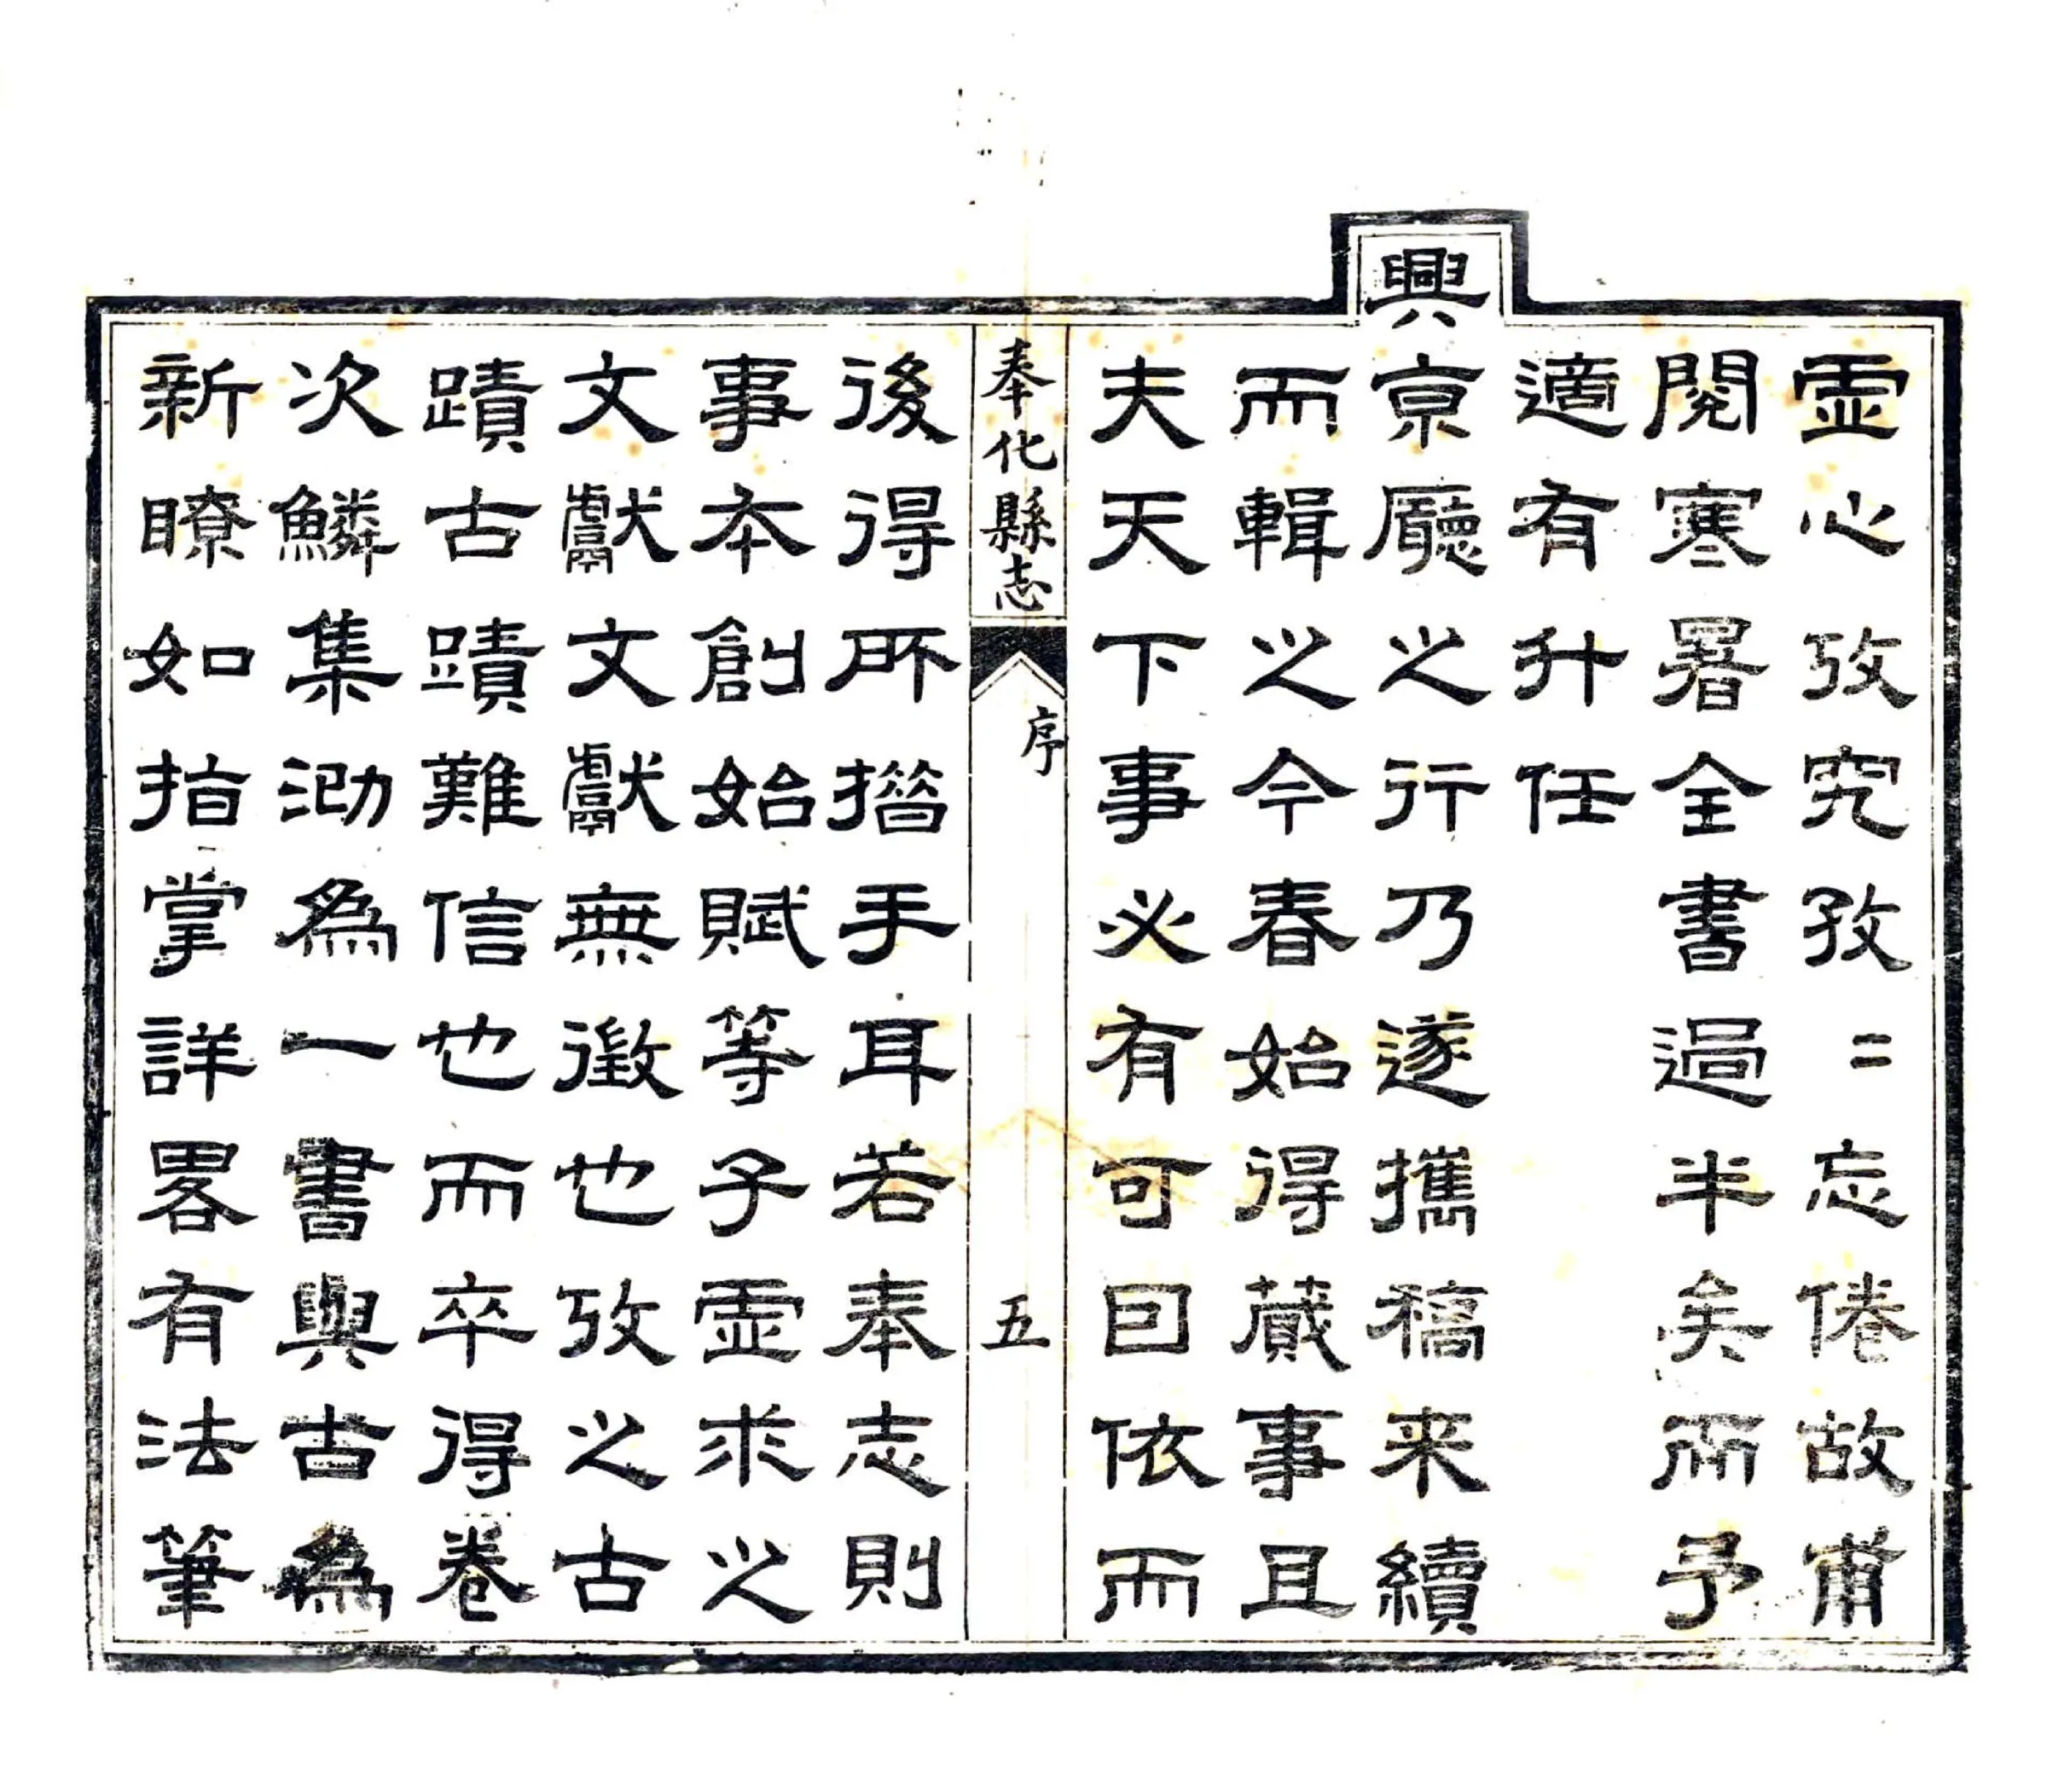 虛心攷究孜〻忘倦故甫
閱寒暑全書過半矣而予
適有升任
興京廳之行乃遂攜稿来續
而輯之今春始得蕆事且
夫天下事必有可因依而
奉化縣志
序
五
後得所措手耳若奉志則
事本創始賦等子虛求之
文獻文獻無徵也攷之古
蹟古蹟難信也而卒得卷
次鱗集泐為一書與古為
新瞭如指掌詳畧有法筆